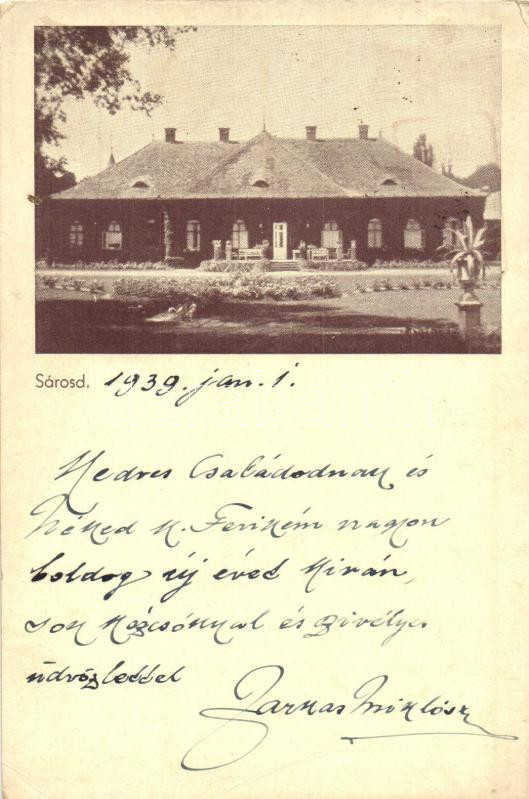 Sárosd. 1939. jan. 1.
Kedves Családodnak és
Néked K. Ferikém nagyon
boldog új évet kiván,
sok kézcsókkal és szivélyes
üdvözlettel
Farkas Miklós